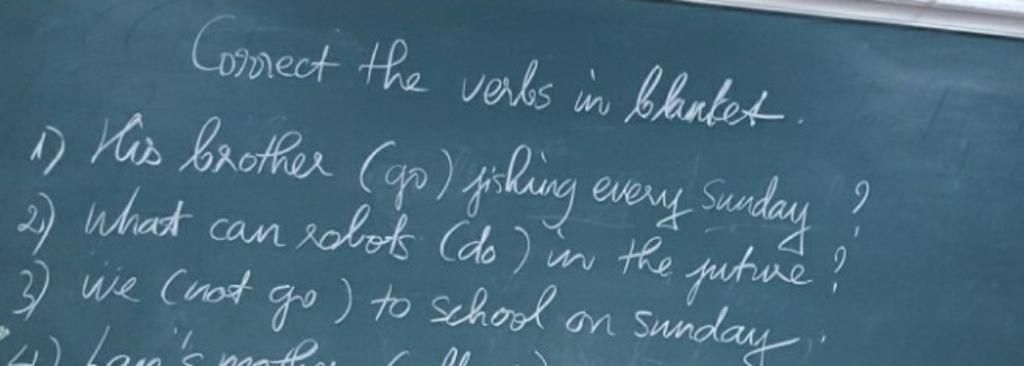 Correct the verbs in blanket.
1) His brother (go) fishing every Sunday ?
2) What can robots (do) in the future ?
3) We (not go) to school on Sunday.
4) Lan's mother